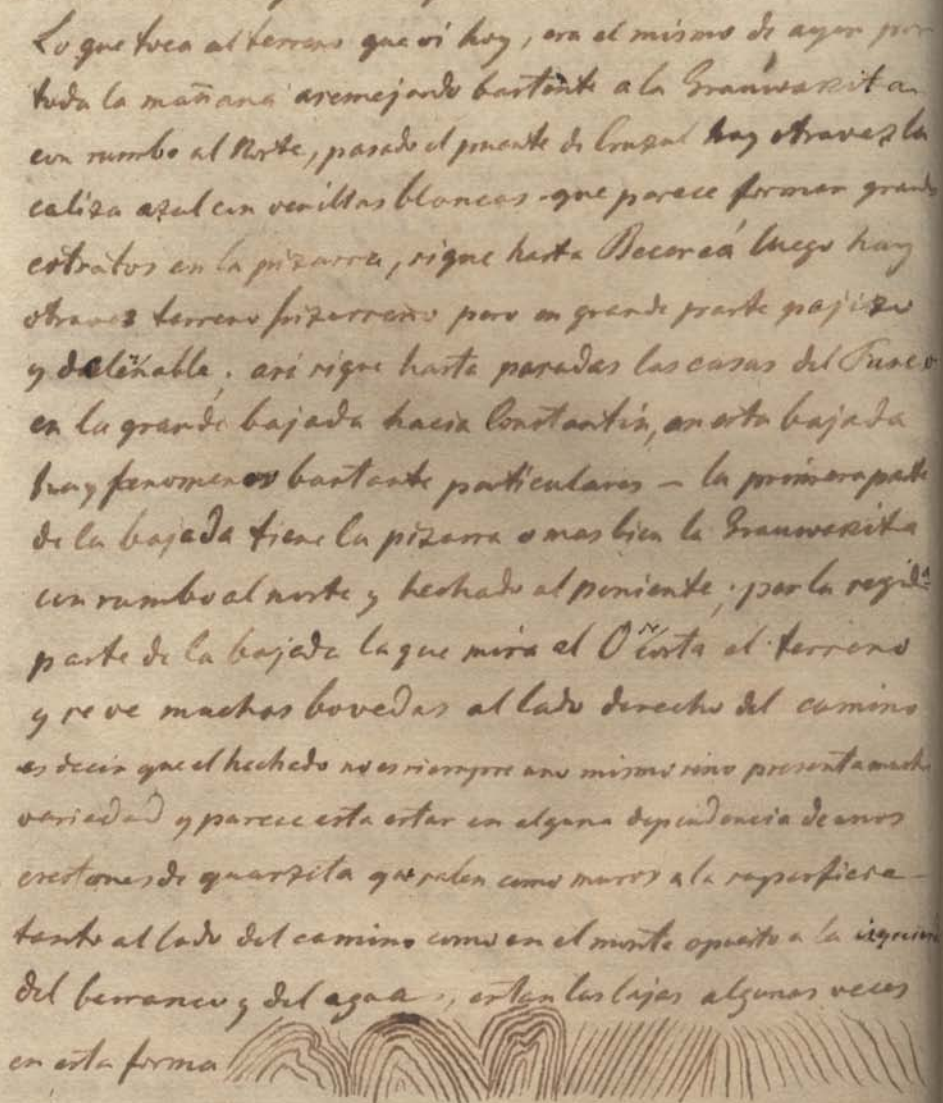 Lo que toca al terreno que vi hoy, era el mismo de ayer por
toda la mañana asemejando bastante a la Grauwakita
con rumbo al Norte, pasado el puente de Cruzul hay otravez la
caliza azul con venillas blancas que parece forman grandes
estratos en la pizarra, sigue hasta Becereá luego hay
otravez terreno pizarreno pero en grande parte pajizo
y deleñable; asi sigue hasta pasadas las casas del
en la grande bajada hacia Constantin, en esta bajada
hay fenomenos bastante particulares – la primera parte
de la bajada tiene la pizarra o mas bien la Grauwakita
con rumbo al norte y hechado al poniente; por la segda
parte de la bajada la que mira al Ote corta el terreno
y se ve muchas bovedas al lado derecho del camino
es decir que el hechado no es siempre uno mismo sino presenta mucha
variedad y parece esta estar en alguna dependencia de unos
crestones de quarzita que salen como muros a la superficie
tanto al lado del camino como en el monte opuesto a la
del barranco y del agua, estan las lajas algunas veces
en esta forma